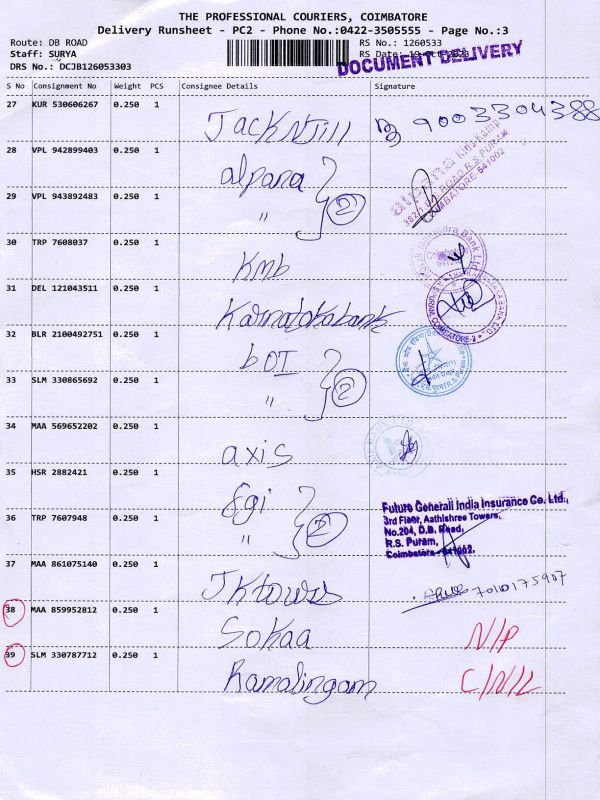 THE PROFESSIONAL COURIERS, COIMBATORE
Delivery Runsheet - PC2 - Phone No.:0422-3505555 - Page No.:3
Route: DB ROAD
RS No.: 1260533
Staff: SURYA
RS Date: 19-Oct-2023
DOCUMENT DELIVERY
DRS No.: DCJB126053303
S No Consignment No Weight PCS Consignee Details Signature
27 KUR 530606267 0.250 1 Jack N Jill 9003304388
28 VPL 942899403 0.250 1 alpana
R.S PURAM
COIMBATORE 641002
29 VPL 943892483 0.250 1 " 2
30 TRP 7608037 0.250 1 Kmb
31 DEL 121043511 0.250 1 Karnataka bank
COIMBATORE-2
32 BLR 2100492751 0.250 1 bOI
33 SLM 330865692 0.250 1 " 2
34 MAA 569652202 0.250 1 axis
35 HSR 2882421 0.250 1 fgi
Future Generali India Insurance Co. Ltd.,
3rd Floor, Aathishree Towers,
No.204, D.B. Road,
R.S. Puram,
Coimbatore - 641002.
36 TRP 7607948 0.250 1 " 2
37 MAA 861075140 0.250 1 JK towers 7010175907
38 MAA 859952812 0.250 1 Sokaa N/P
39 SLM 330787712 0.250 1 Ramalingam C/N/L